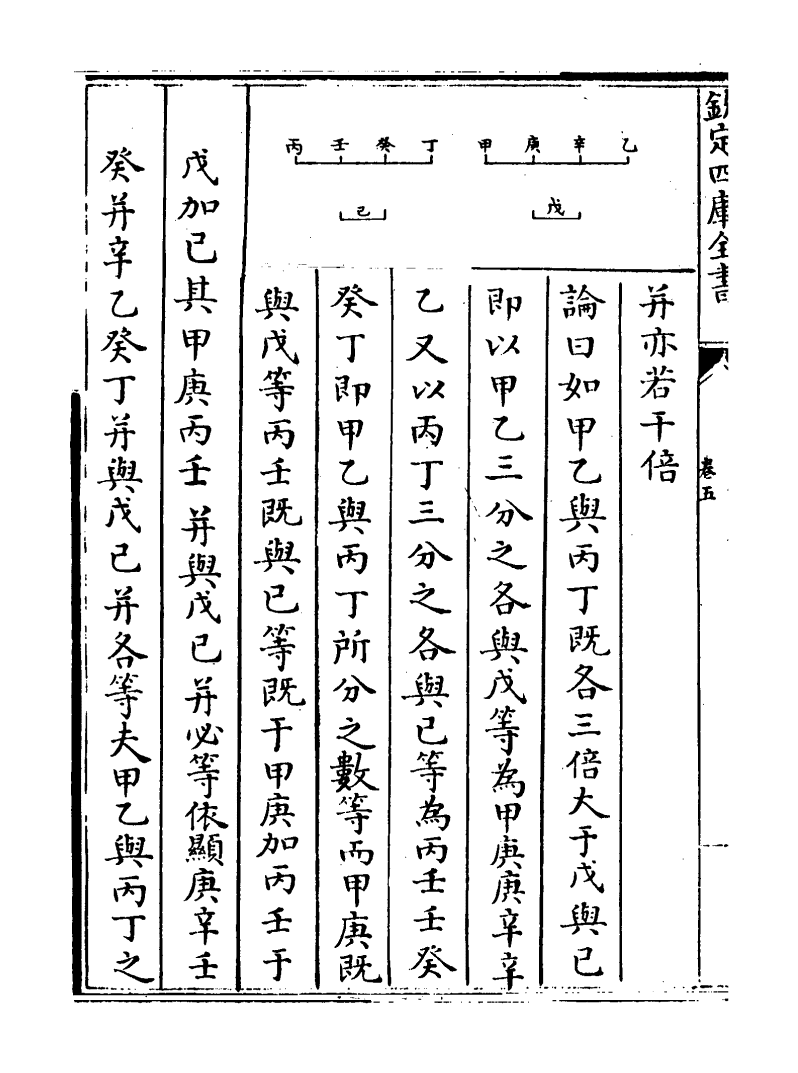 欽定四庫全書
卷五
并亦若干倍
論曰如甲乙與丙丁既各三倍大于戊與己
即以甲乙三分之各與戊等為甲庚庚辛辛
乙又以丙丁三分之各與己等為丙壬壬癸
癸丁即甲乙與丙丁所分之數等而甲庚既
與戊等丙壬既與己等既于甲庚加丙壬于
戊加己其甲庚丙壬并與戊己并必等依顯庚辛壬
癸并辛乙癸丁并與戊己并各等夫甲乙與丙丁之
乙 辛 庚 甲 丁 癸 壬 丙
戊 己